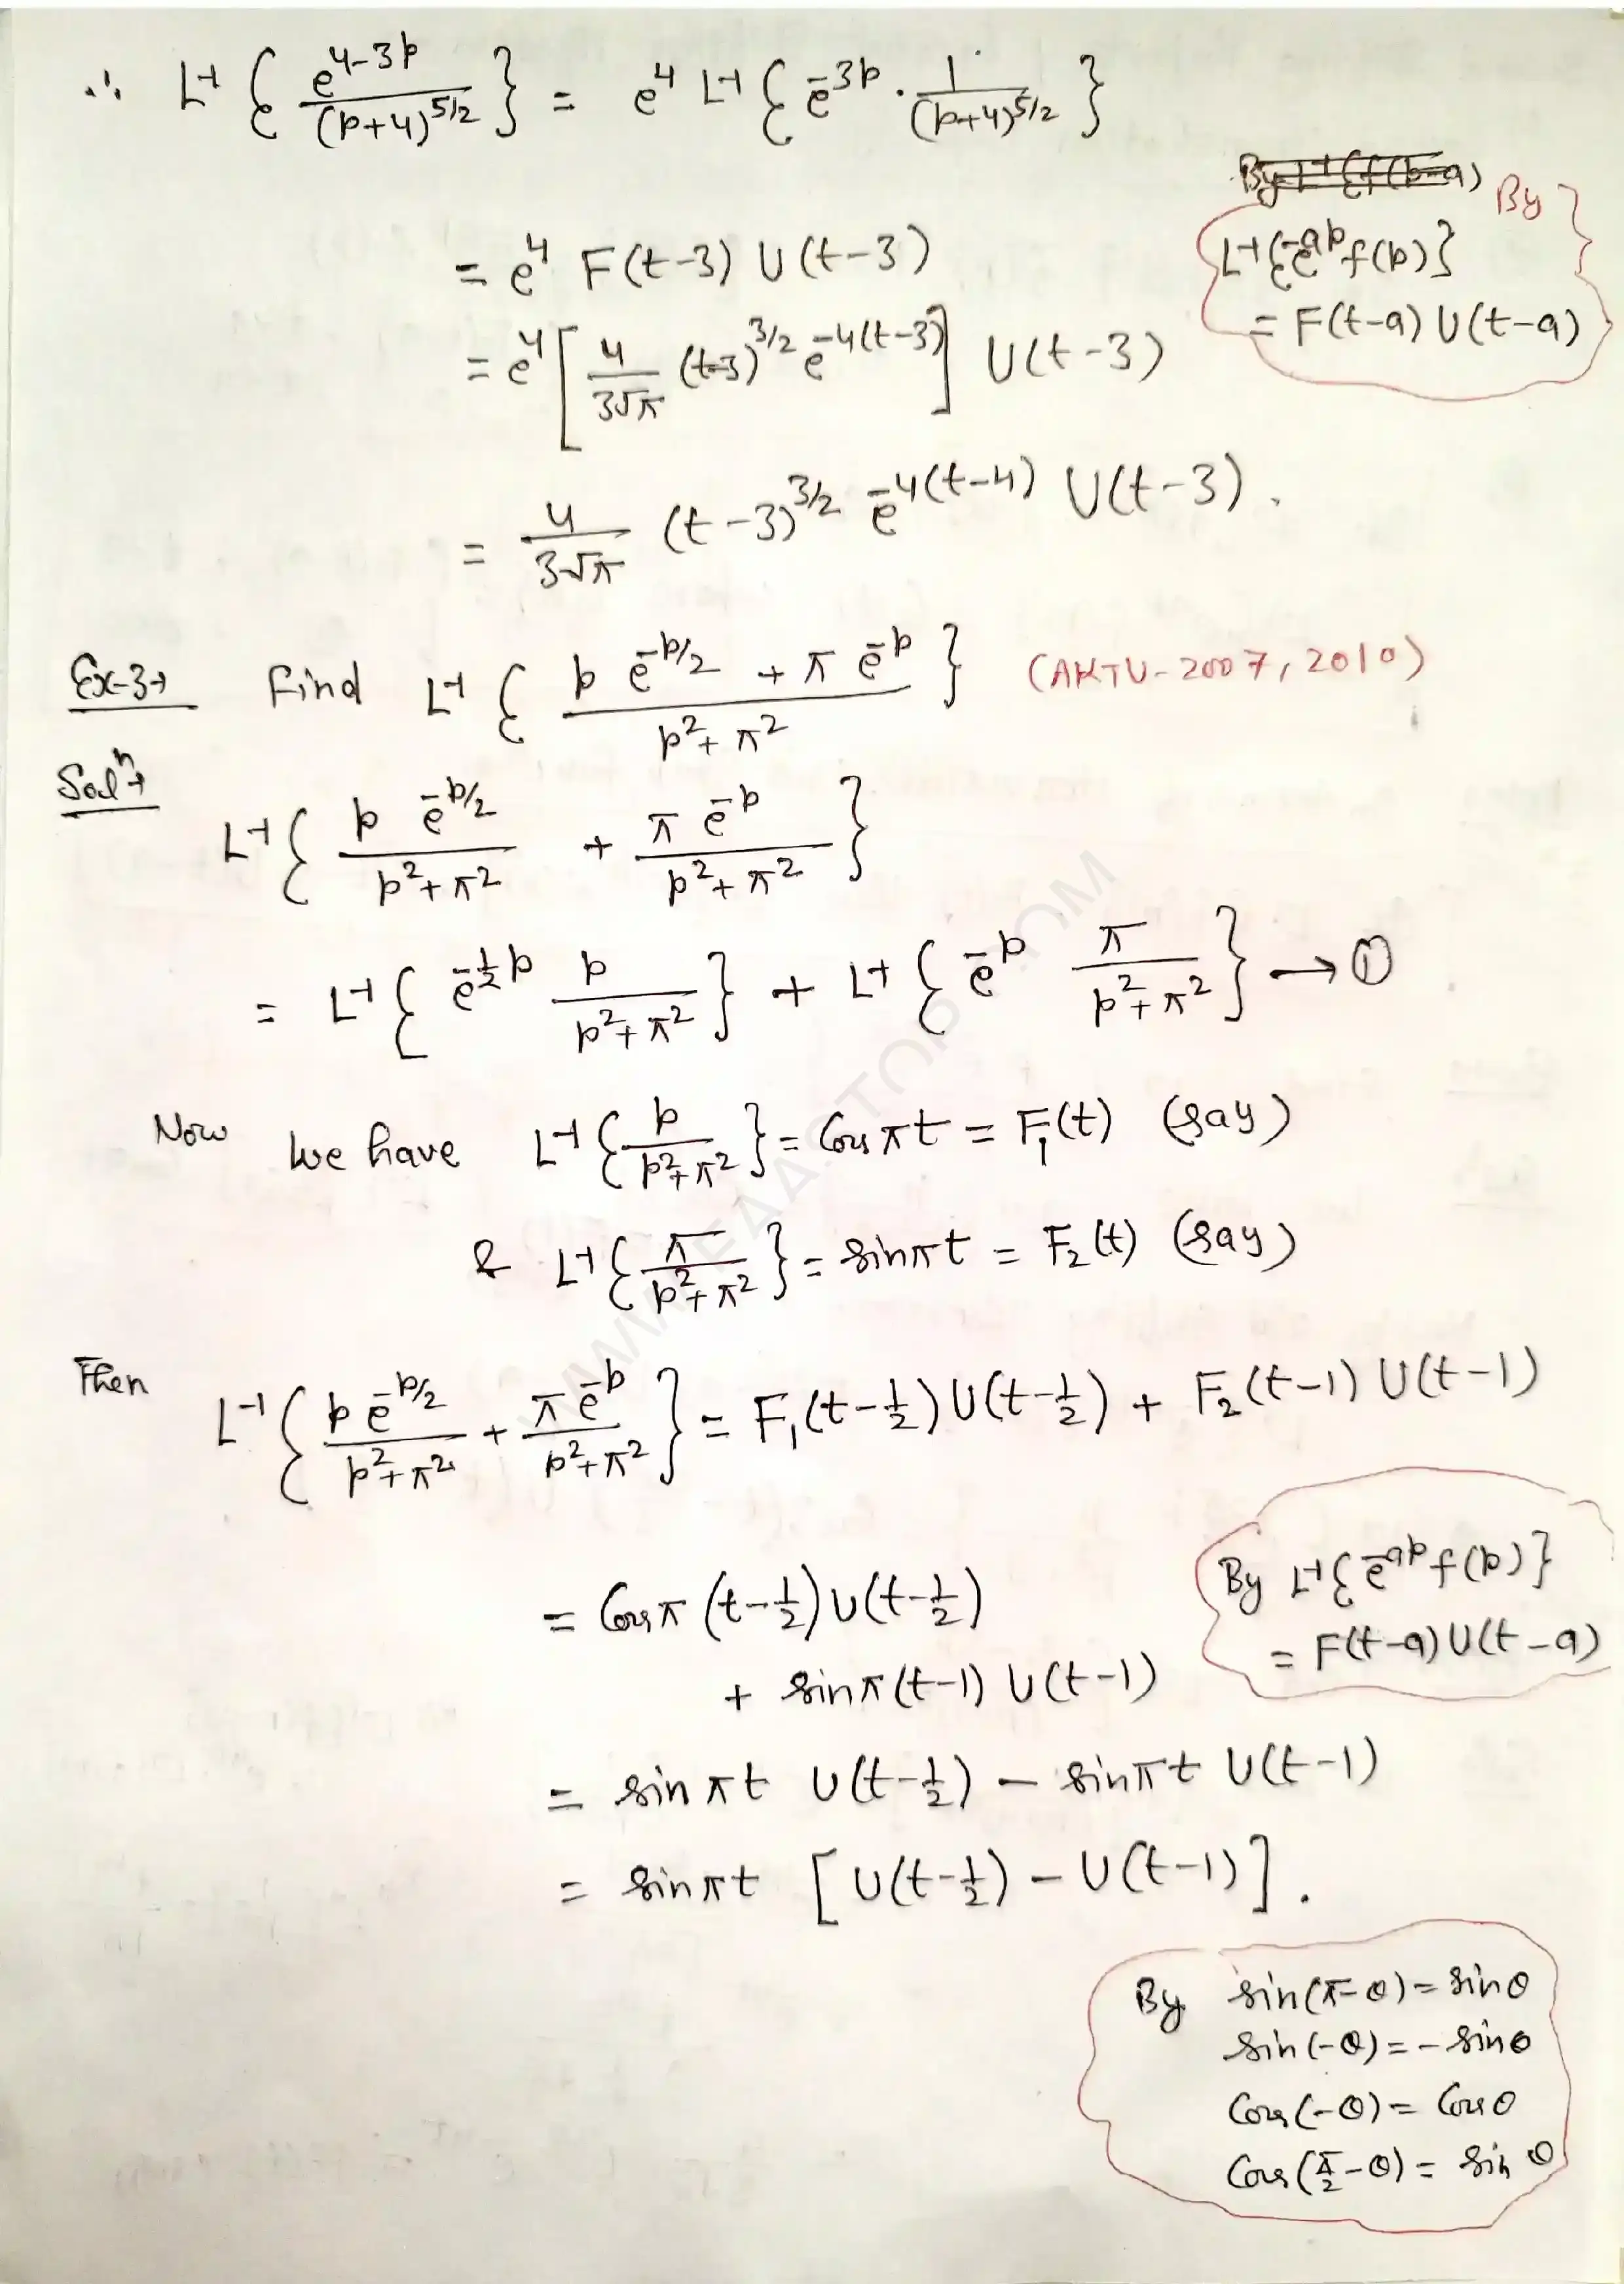 ∴ L⁻¹ { e^{4-3p} / (p+4)^{5/2} } = e⁴ L⁻¹ { e^{-3p} · 1 / (p+4)^{5/2} }
By L⁻¹{f(p-a)
By
L⁻¹{e^{-ap} f(p)}
= F(t-a) U(t-a)
= e⁴ F(t-3) U(t-3)
= e⁴ [ 4/(3√π) (t-3)^{3/2} e^{-4(t-3)} ] U(t-3)
= 4/(3√π) (t-3)^{3/2} e^{-4(t-4)} U(t-3).
Ex-3→ Find L⁻¹ { (p e^{-p/2} + π e^{-p}) / (p²+π²) } (AKTU-2007, 2010)
Solⁿ→
L⁻¹ { p e^{-p/2} / (p²+π²) + π e^{-p} / (p²+π²) }
= L⁻¹ { e^{-½p} p/(p²+π²) } + L⁻¹ { e^{-p} π/(p²+π²) } → ①
Now we have L⁻¹ { p/(p²+π²) } = Cos πt = F₁(t) (say)
& L⁻¹ { π/(p²+π²) } = sin πt = F₂(t) (say)
Then L⁻¹ { p e^{-p/2} / (p²+π²) + π e^{-p} / (p²+π²) } = F₁(t-½) U(t-½) + F₂(t-1) U(t-1)
By L⁻¹{e^{-ap} f(p)}
= F(t-a) U(t-a)
= Cos π (t-½) U(t-½)
+ sin π (t-1) U(t-1)
= sin πt U(t-½) - sin πt U(t-1)
= sin πt [ U(t-½) - U(t-1) ].
By sin(π-θ) = sin θ
sin(-θ) = - sin θ
Cos(-θ) = Cos θ
Cos(π/2-θ) = sin θ